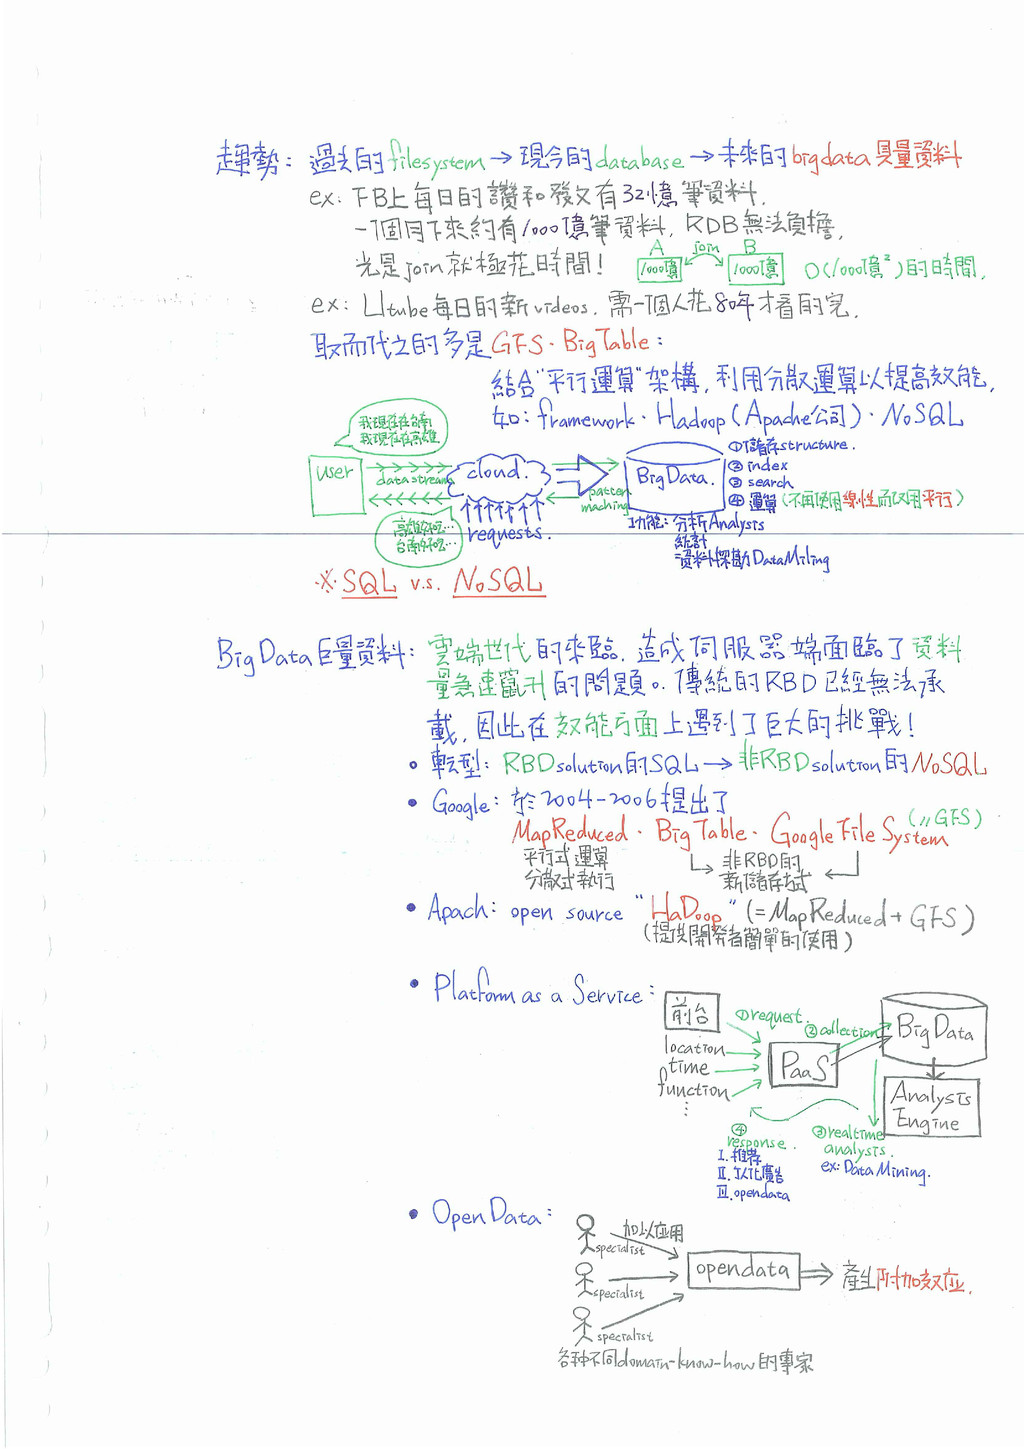 趨勢: 過去的filesystem→現今的database→未來的bigdata巨量資料
ex: FB上每日的讚和發文有32億筆資料.
一個月下來約有1000億筆資料, RDB無法負擔,
光是join就極花時間!
A join B
1000億 1000億 O(1000億²)的時間.
ex: Utube每日的新videos. 需一個人花80年才看的完.
取而代之的多是GFS·BigTable:
結合"平行運算"架構, 利用分散運算以提高效能,
如: framework·Hadoop(Apache公司)·NoSQL
我現在在台南
我現在在高雄
user
data stream
cloud.
pattern
maching
BigData.
①儲存structure.
②index
③search
④運算(不再使用線性而改用平行)
高雄好吃...
台南好吃...
requests.
功能: 分析Analysis
統計
資料探勘DataMiling
※SQL v.s. NoSQL
BigData巨量資料: 雲端世代的來臨, 造成伺服器端面臨了資料
量急速竄升的問題。傳統的RBD已經無法承
載, 因此在效能方面上遇到了巨大的挑戰!
• 轉型: RBDsolution的SQL→非RBDsolution的NoSQL
• Google: 於2004-2006提出了
MapReduced·BigTable·GoogleFileSystem (GFS)
平行式運算
分散式執行
非RBD的
新儲存方式
• Apach: open source "HaDoop" (=MapReduced+GFS)
(提供開發者簡單的使用)
• Platform as a Service:
前台
location
time
function
⋮
①request.
②collection
PaaS
BigData
Analysis
Engine
③realtime
analysis.
ex: DataMining.
④
response.
I.推薦
II.客製化廣告
III.opendata
• OpenData:
加以應用
specialist
specialist
specialist
opendata
產生附加效应.
各种不同domain-know-how的專家